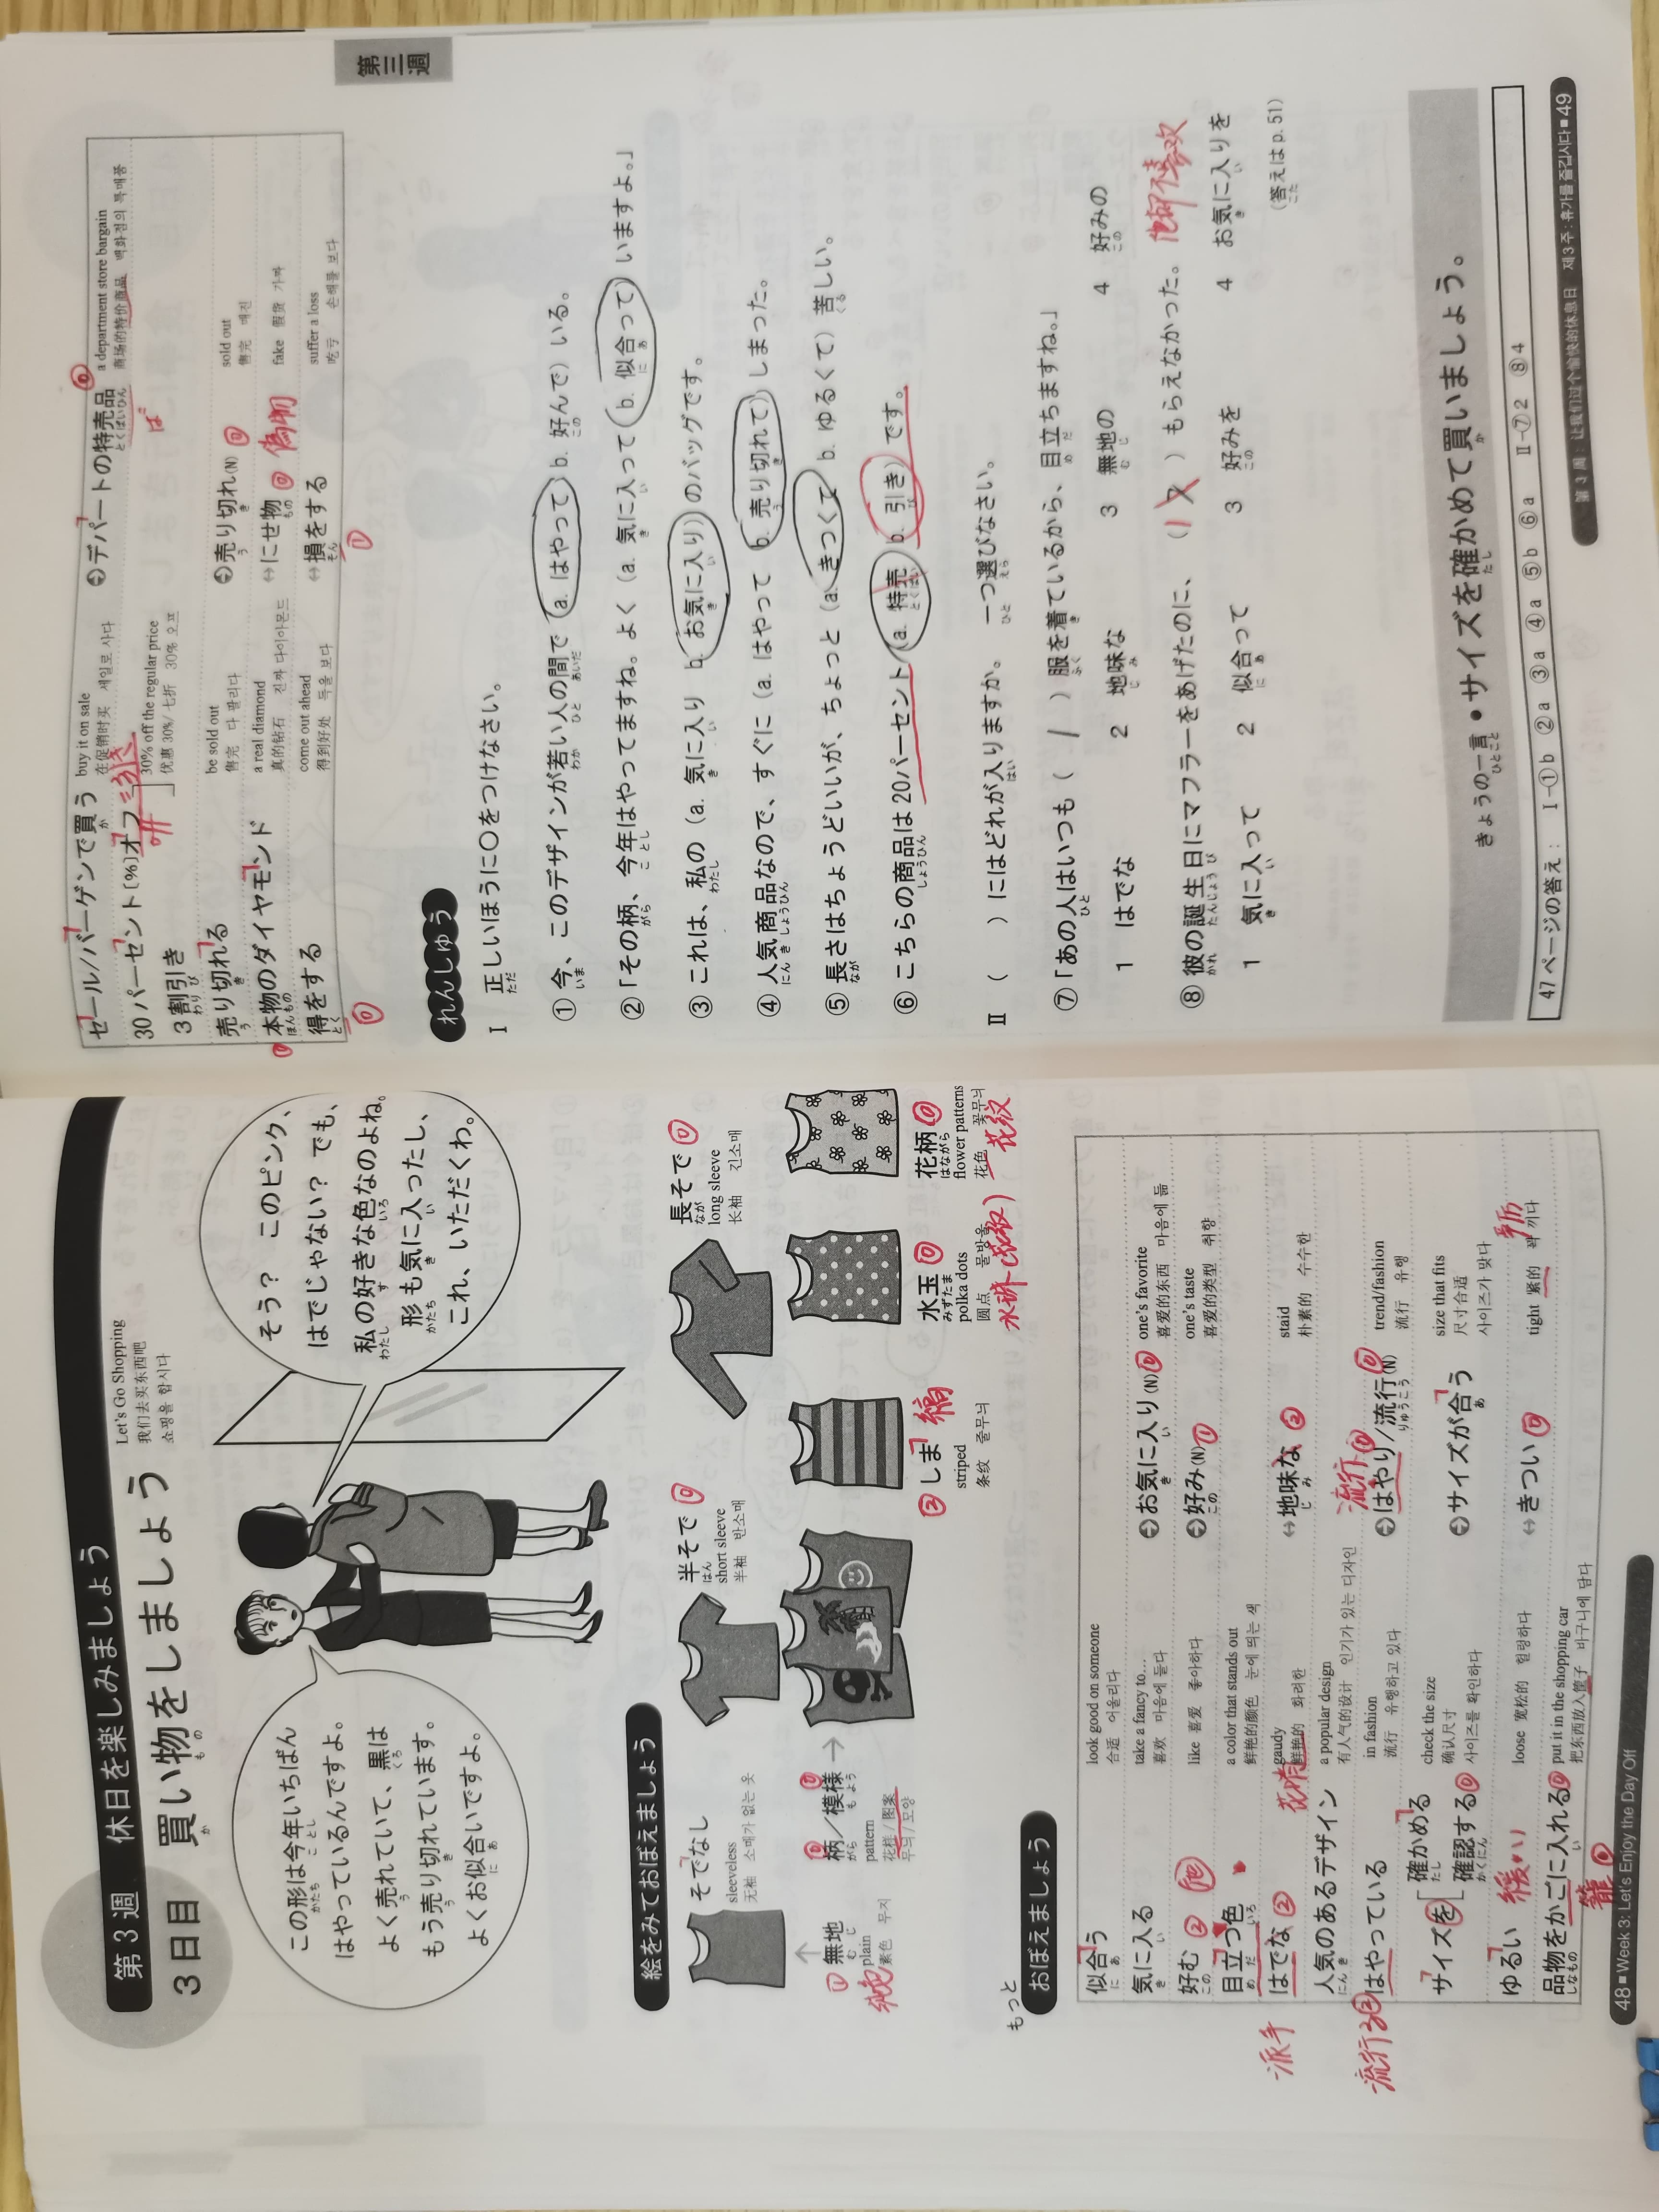 第3週 休日を楽しみましょう
3日目 買い物をしましょう
Let's Go Shopping
我们去买东西吧
쇼핑을 합시다
この形は今年いちばん
はやっているんですよ。
よく売れていて、黒は
もう売り切れています。
よくお似合いですよ。
そう? このピンク、
はでじゃない? でも、
私の好きな色なのよね。
形も気に入ったし、
これ、いただくわ。
絵をみておぼえましょう
そでなし
sleeveless
无袖 소매가 없는 옷
半そで ⓪
short sleeve
半袖 반소매
長そで ⓪
long sleeve
长袖 긴소매
① 無地
plain
素色 무지
柄/模様 ⓪
pattern
花样/图案
무늬/모양
② しま 縞
striped
条纹 줄무늬
水玉 ⓪
polka dots
圆点 물방울
花柄 ⓪
flower patterns
花色 꽃무늬
花纹
もっと
おぼえましょう
似合う look good on someone
合适 어울리다
気に入る take a fancy to…
喜欢 마음에 들다
➔お気に入り(N) ⓪ one's favorite
喜爱的东西 마음에 듦
好む ② like 喜爱 좋아하다
➔好み(N) ① one's taste
喜爱的类型 취향
目立つ色 a color that stands out
鲜艳的颜色 눈에 띄는 색
派手
はでな ② gaudy
鲜艳的 화려한
⇔地味な ② staid
朴素的 수수한
人気のあるデザイン a popular design
有人气的设计 인기가 있는 디자인
流行る
はやっている in fashion
流行 유행하고 있다
流行
➔はやり/流行(N) ⓪ trend/fashion
流行 유행
サイズを 確かめる check the size
確認する ⓪ 确认尺寸
사이즈를 확인하다
➔サイズが合う size that fits
尺寸合适
사이즈가 맞다
ゆるい 緩い loose 宽松的 헐렁하다
⇔きつい ⓪ tight 紧的 꽉 끼다
品物をかごに入れる ⓪ put it in the shopping car
把东西放入筐子 바구니에 담다
籠 ⓪
48■Week 3: Let's Enjoy the Day Off
第三週
セール/バーゲンで買う buy it on sale
在促销时买 세일로 사다
➔デパートの特売品 ⓪ a department store bargain
商场的特价商品 백화점의 특매품
ば
30パーセント[%]オフ 30% off the regular price
3割引き 优惠30%/七折 30% 오프
売り切れる be sold out
售完 다 팔리다
➔売り切れ(N) ⓪ sold out
售完 매진
本物のダイヤモンド a real diamond
真的钻石 진짜 다이아몬드
⇔にせ物 ⓪ 偽物 fake 假货 가짜
得をする come out ahead
得到好处 득을 보다
⇔損をする suffer a loss
吃亏 손해를 보다
れんしゅう
I 正しいほうに○をつけなさい。
① 今、このデザインが若い人の間で(a. はやって b. 好んで)いる。
②「その柄、今年はやってますね。よく(a. 気に入って b. 似合って)いますよ。」
③ これは、私の(a. 気に入り b. お気に入り)のバッグです。
④ 人気商品なので、すぐに(a. はやって b. 売り切れて)しまった。
⑤ 長さはちょうどいいが、ちょっと(a. きつくて b. ゆるくて)苦しい。
⑥ こちらの商品は20パーセント(a. 特売 b. 引き)です。
II ( )にはどれが入りますか。一つ選びなさい。
⑦「あの人はいつも( 1 )服を着ているから、目立ちますね。」
1 はでな 2 地味な 3 無地の 4 好みの
⑧ 彼の誕生日にマフラーをあげたのに、( 1 )もらえなかった。
1 気に入って 2 似合って 3 好みを 4 お気に入りを
(答えはp.51)
きょうの一言●サイズを確かめて買いましょう。
47ページの答え: I-①b ②a ③a ④a ⑤b ⑥a II-⑦2 ⑧4
第3周:让我们过个愉快的休息日 제3주:휴가를 즐깁시다■49